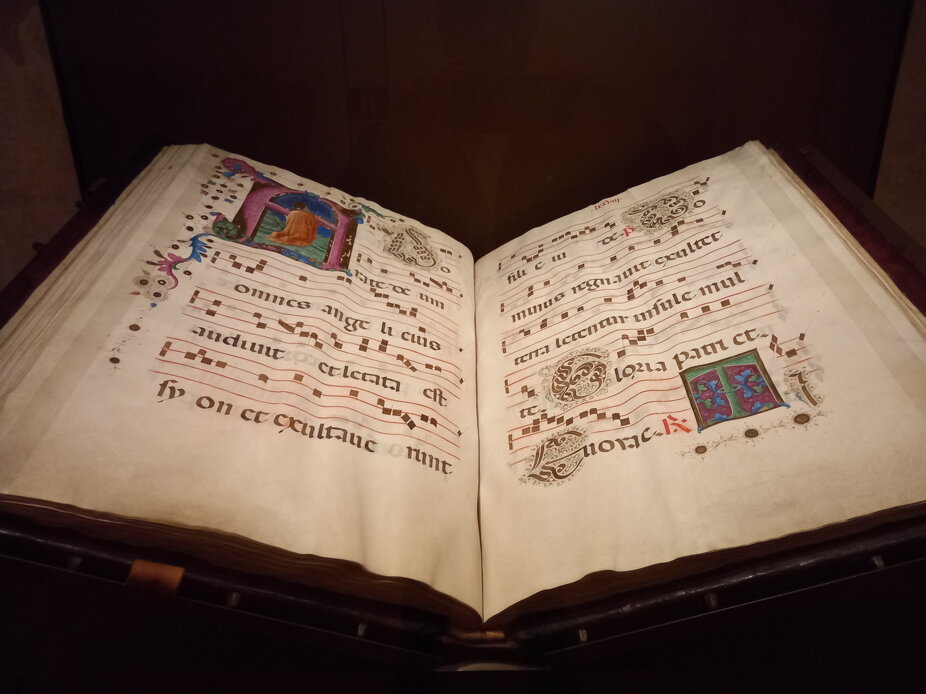 A D o
rate de um
omnes ange li eius
audiuit et letata est
sy on et exultaue runt
fili e iu de D o
minus regnauit exultet
terra letentur insule mul
te Gloria patri et
T